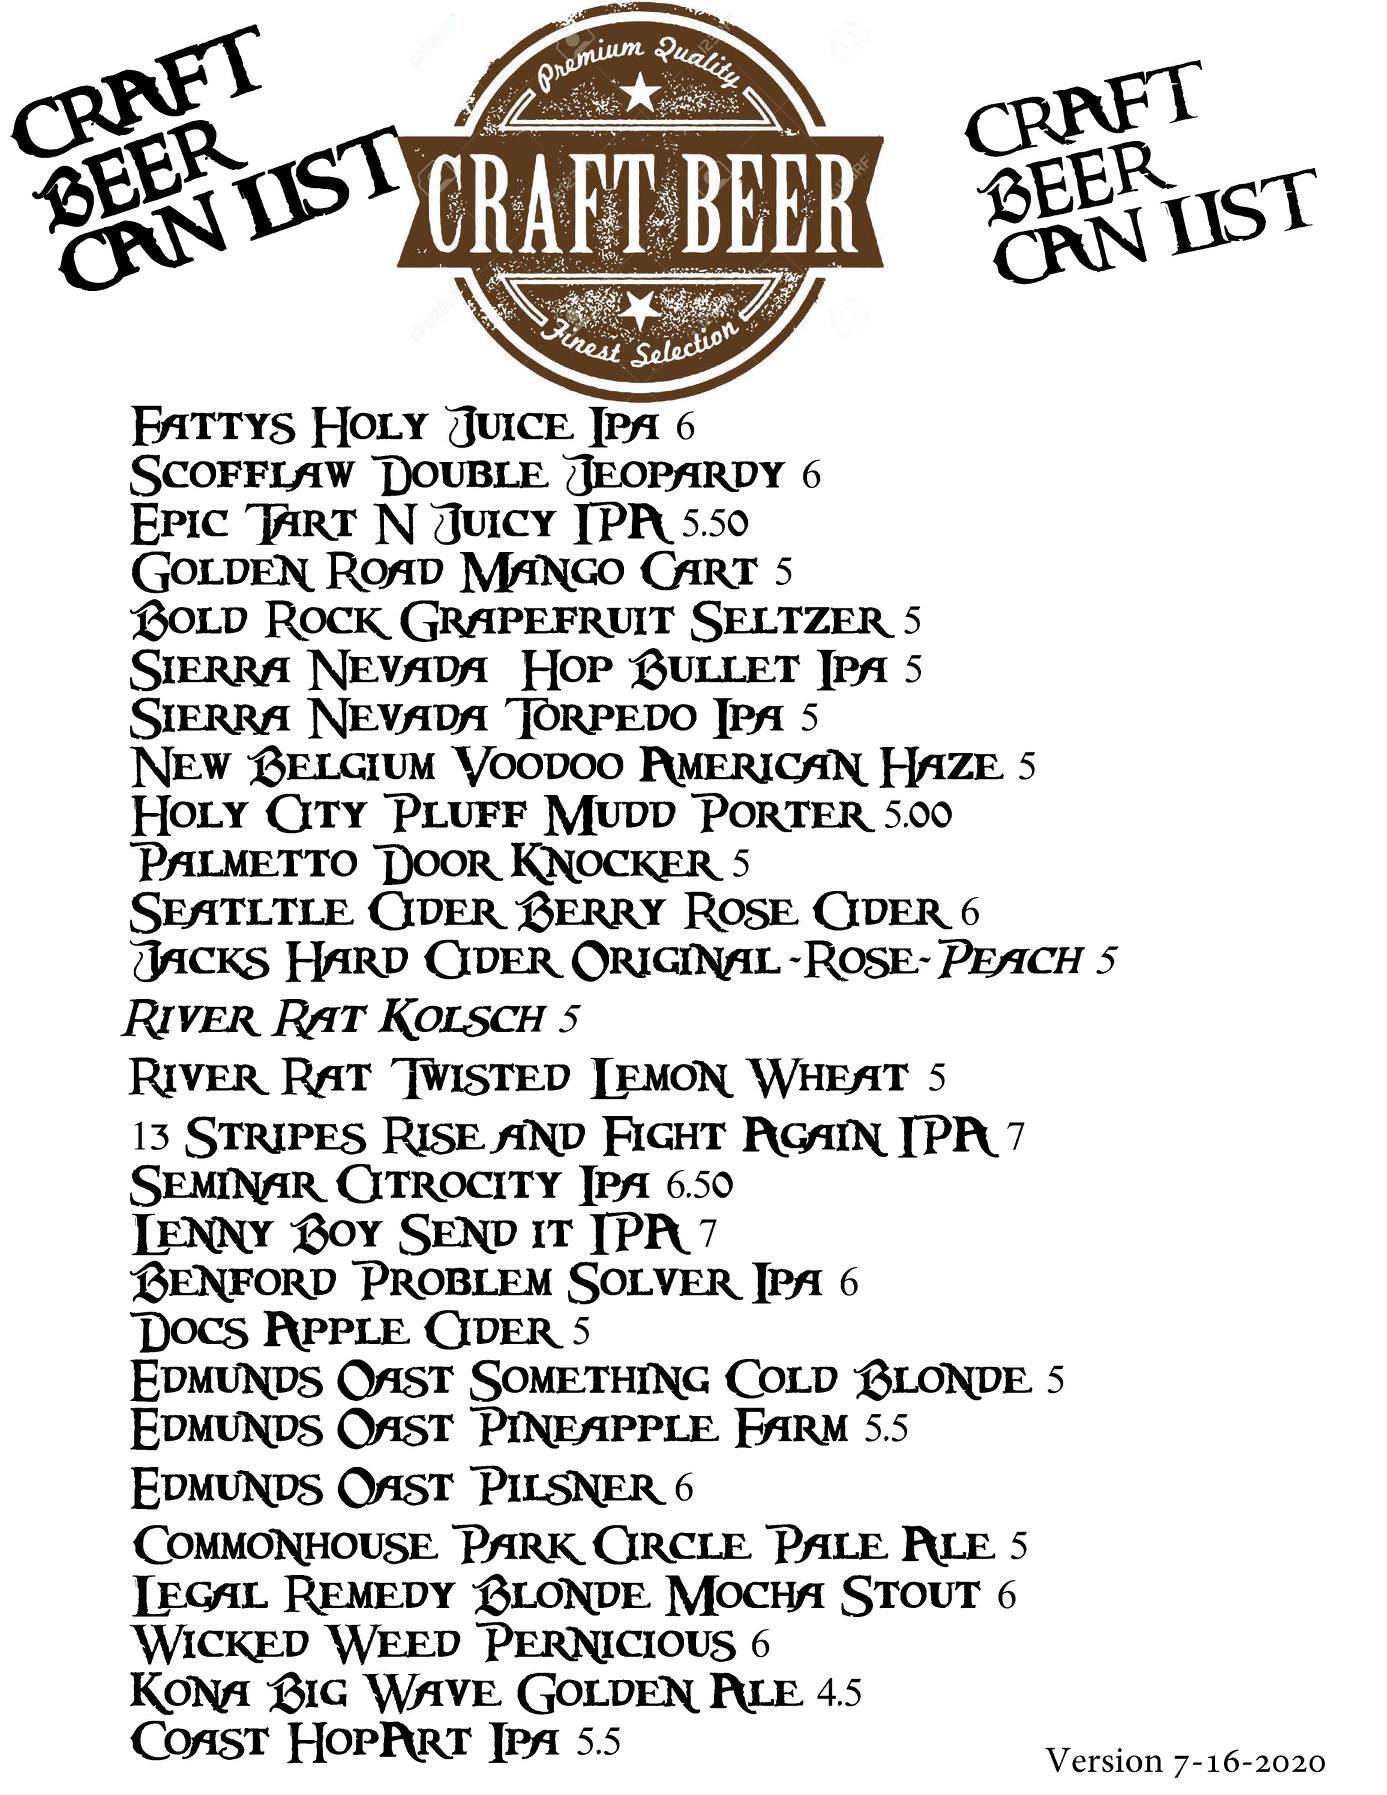 CRAFT
BEER
CAN LIST
Premium Quality
CRAFT BEER
Finest Selection
CRAFT
BEER
CAN LIST
Fattys Holy Juice Ipa 6
Scofflaw Double Jeopardy 6
Epic Tart N Juicy IPA 5.50
Golden Road Mango Cart 5
Bold Rock Grapefruit Seltzer 5
Sierra Nevada Hop Bullet Ipa 5
Sierra Nevada Torpedo Ipa 5
New Belgium Voodoo American Haze 5
Holy City Pluff Mudd Porter 5.00
Palmetto Door Knocker 5
Seatltle Cider Berry Rose Cider 6
Jacks Hard Cider Original-Rose-Peach 5
River Rat Kolsch 5
River Rat Twisted Lemon Wheat 5
13 Stripes Rise and Fight Again IPA 7
Seminar Citrocity Ipa 6.50
Lenny Boy Send it IPA 7
Benford Problem Solver Ipa 6
Docs Apple Cider 5
Edmunds Oast Something Cold Blonde 5
Edmunds Oast Pineapple Farm 5.5
Edmunds Oast Pilsner 6
Commonhouse Park Circle Pale Ale 5
Legal Remedy Blonde Mocha Stout 6
Wicked Weed Pernicious 6
Kona Big Wave Golden Ale 4.5
Coast HopArt Ipa 5.5
Version 7-16-2020